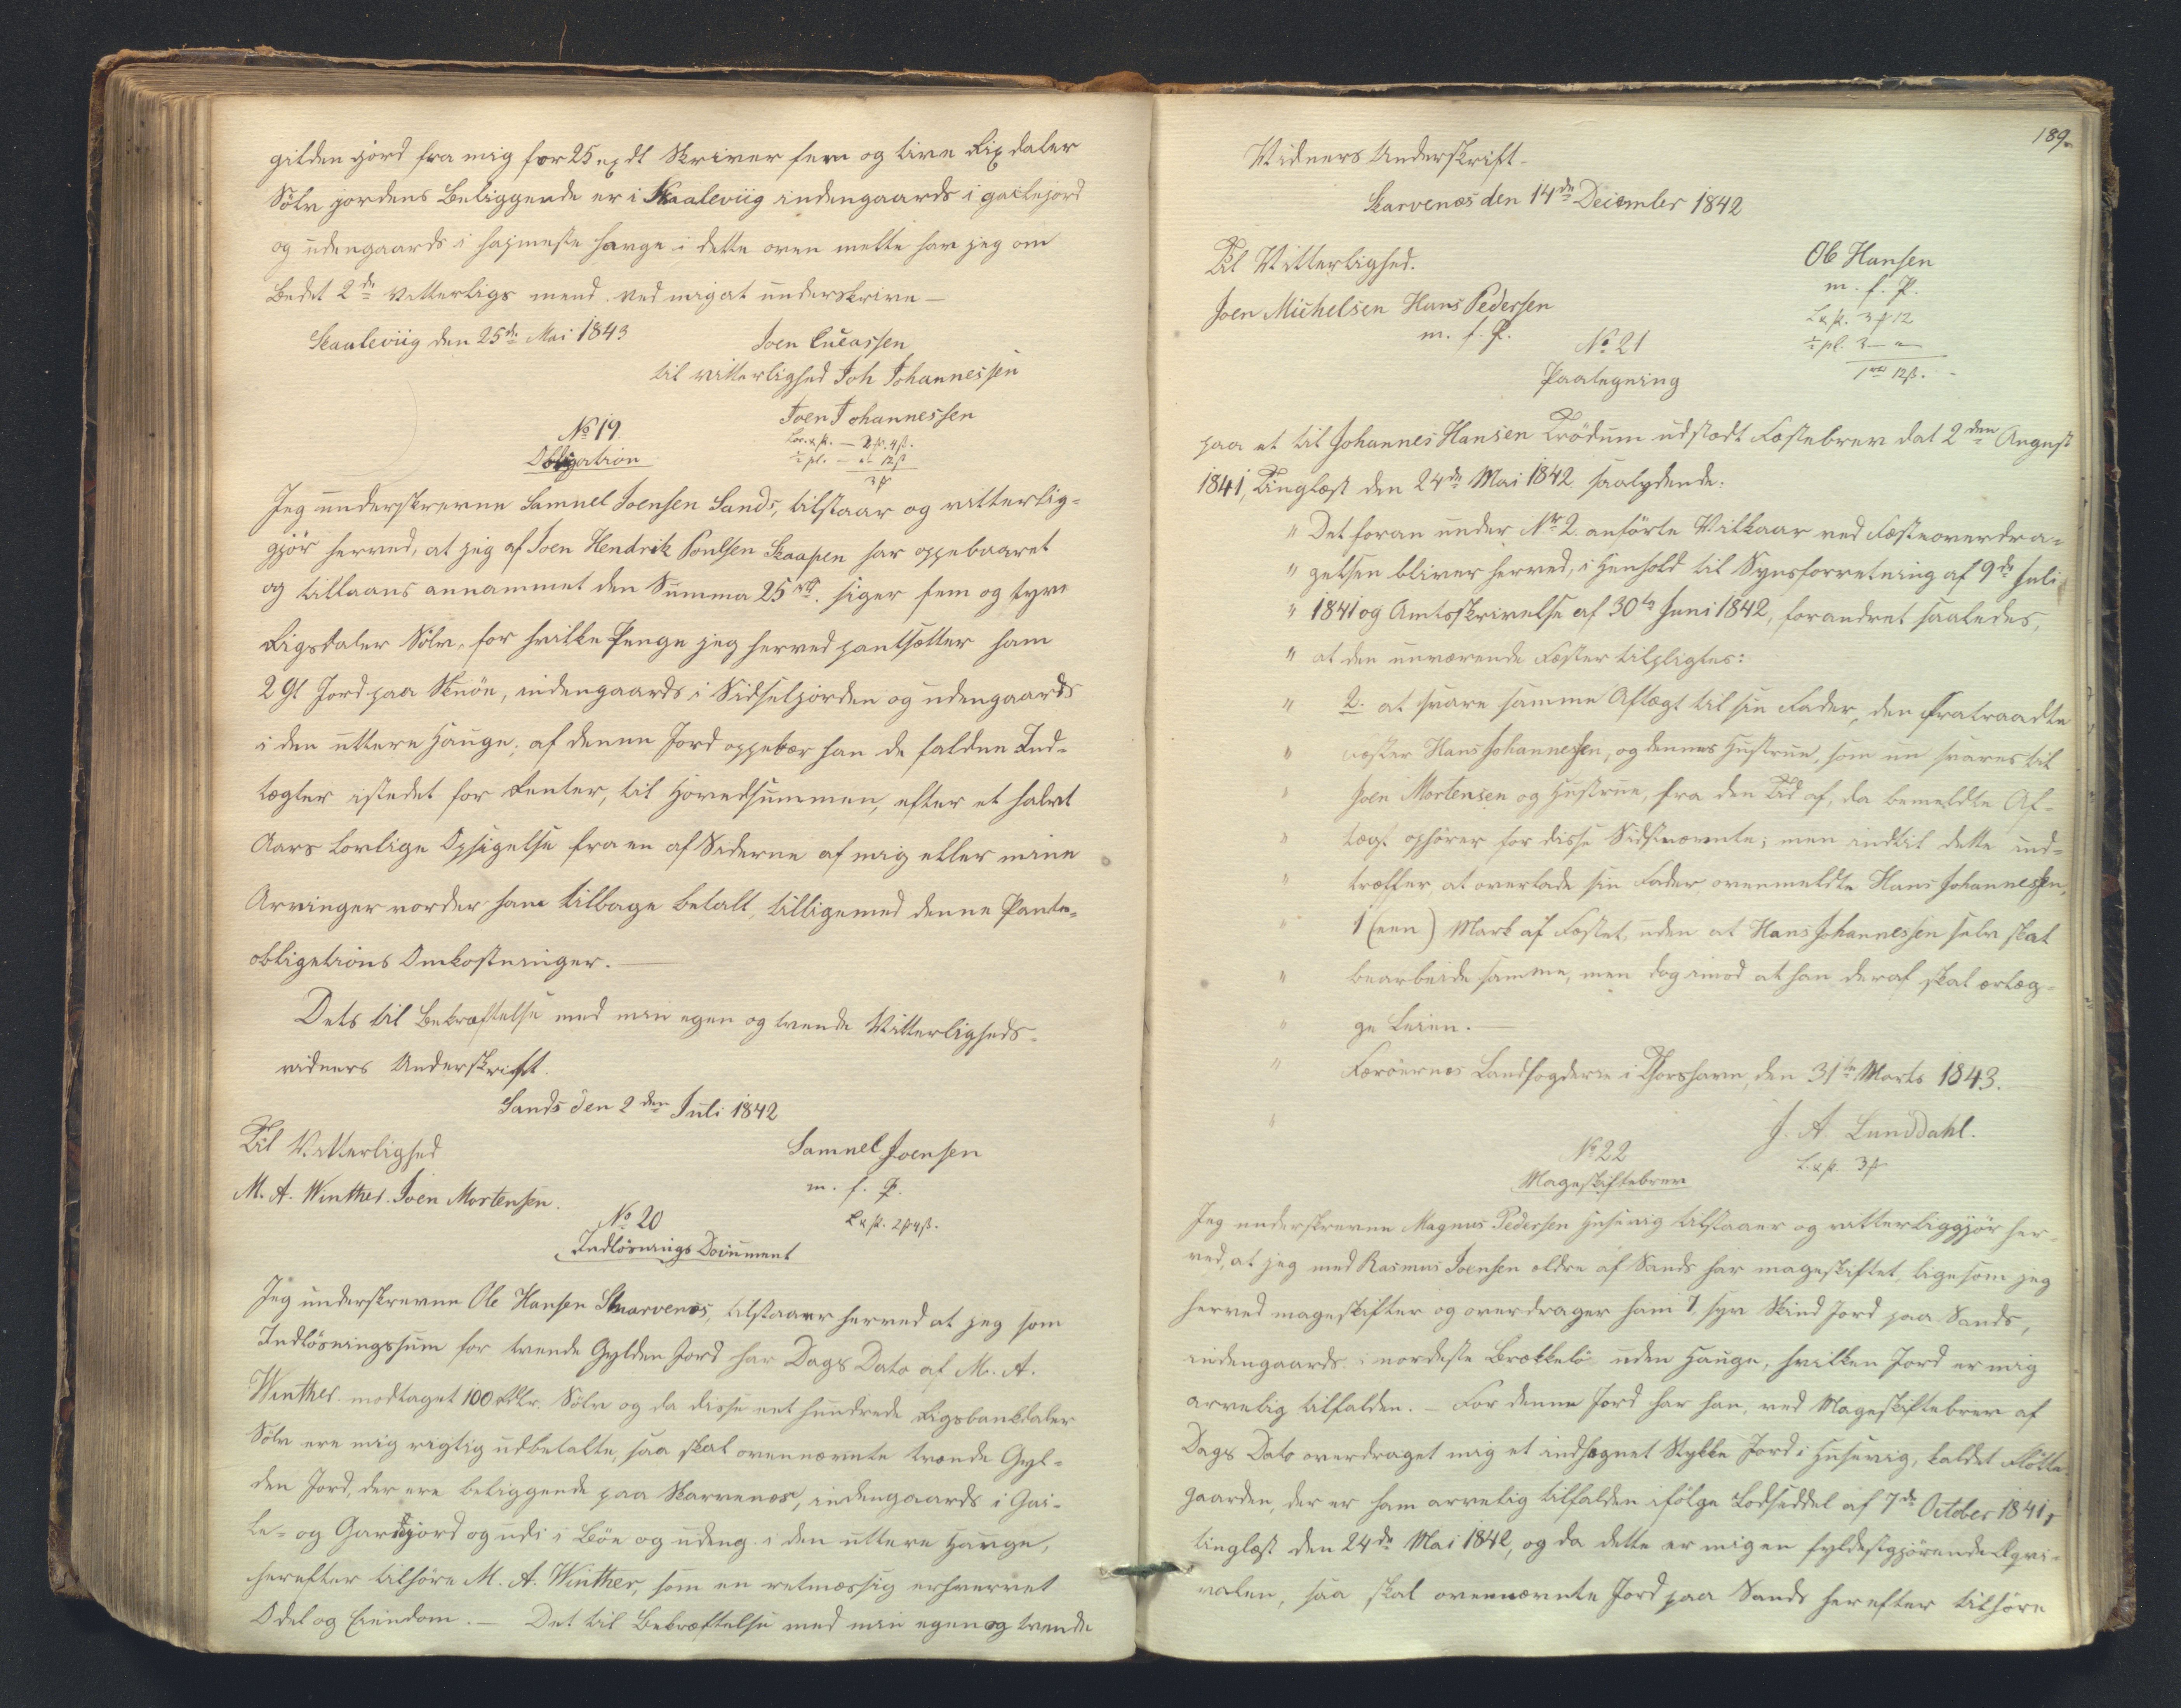 gilden jord fra mig for 25 rxdl skriver fem og tive Rixdaler
Sölv jordens Beliggende er i Skaaleviig indengaards i gailejord
og udengaards i hajmeste havge i dette oven melte har jeg om
Bedet 2de vitterligs mend ved mig at underskrive —
Skaaleviig den 25de Mai 1843
Joen Lucassen
til vitterlighed Joh Johannessen
Joen Johannessen
No 19.
Obligation
3 ß
Jeg underskrevne Samuel Joensen Sands, tilstaar og vitterlig-
gjör herved, at jeg af Joen Hendrik Poulsen Skaapen har oppebaaret
og tillaans annammet den Summa 25 rd. siger fem og tyve
Rigsdaler Sölv, for hvilke Penge jeg herved pantsætter ham
2 Gl Jord paa Skuön, indengaards i Sidseljorden og udengaards
i den uttere Hauge; af denne Jord oppebær han de faldne Ind-
tægter istedet for Renter, til Hovedsummen, efter et halvt
Aars lovlige Opsigelse fra en af Siderne af mig eller mine
Arvinger vorder ham tilbage betalt, tilligemed denne Pante-
obligations Omkostninger. —
Dets til Bekræftelse med min egen og tvende Vitterligheds-
vidners Underskrift.
Sands den 2den Juli 1842
Til Vitterlighed
Samuel Joensen
M. A. Winther. Joen Mortensen.
m. f. P.
No 20
L & ſk. 2 ß 4 ß.
Indlösnings Document
Jeg underskrevne Ole Hansen Skarvenæs, tilstaaer herved at jeg som
Indlösningssum for tvende Gylden Jord har Dags Dato af M. A.
Winther modtaget 100 Rdlr. Sölv og da disse eet hundrede Rigsbankdaler
Sölv ere mig rigtig udbetalte, saa skal ovennævnte tvende Gyl-
den Jord, der ere beliggende paa Skarvenæs, indengaards i Gai-
le- og Gardsjord og udi i Böe og udeng. i den uttere Hauge,
herefter tilhöre M. A. Winther, som en retmæssig erhvervet
Odel og Eiendom. — Det til Bekræftelse med min egen og tvende
189.
Vidners Underskrift.
Skarvenæs den 14de December 1842
Til Vitterlighed.
Ole Hansen
m. f. P.
Joen Michelsen Hans Pedersen
m. f. P.
No 21
Paategning
paa et til Johannes Hansen Trödum udstædt Fæstebrev dat 2den August
1841, Tinglæst den 24de Mai 1842 saalydende:
" Det foran under Nr 2. anförte Vilkaar ved Fæsteoverdra-
" gelsen bliver herved, i Henhold til Synsforretning af 9de Juli
" 1841 og Amtsskrivelse af 30te Juni 1842, forandret saaledes,
" at den nuværende Fæster tilpligtes:
" 2. at svare samme Aftægt til sin Fader, den fratraadte
" Fæster Hans Johannessen, og dennes Hustrue, som nu svares til
" Joen Mortensen og Hustrue, fra den Tid af, da bemeldte Af-
" tægt ophörer for disse Sidstnævnte; men indtil dette ind-
" træffer, at overlade sin Fader ovenmeldte Hans Johannessen,
" 1 (een) Mark af Fæstet, uden at Hans Johannessen selv skal
" bearbeide samme, men dog imod at han deraf skal erlæg-
" ge Leien. —
" Færöernes Landfogderie i Thorshavn, den 31te Marts 1843.
" J. A. Lunddahl.
No 22
L. & ſk. 3 ß
Mageskiftebrev
Jeg underskrevne Magnus Pedersen Husevig tilstaaer og vitterliggjör her-
ved, at jeg med Rasmus Joensen ældre af Sands har mageskiftet, ligesom jeg
herved mageskifter og overdrager ham 7. syv Skind Jord paa Sands,
indengaards i nordeste Brækkelö uden Hauge, hvilken Jord er mig
arvelig tilfalden. — For denne Jord har han, ved Mageskiftebrev af
Dags Dato overdraget mig et indhegnet Stykke Jord i Husevig, kaldet Flötte-
gaarden, der er ham arvelig tilfalden ifölge Lodseddel af 7de October 1841,
tinglæst den 24de Mai 1842, og da dette er mig en fyldestgjörende Eqvi-
valen, saa skal ovennævnte Jord paa Sands herefter tilhöre